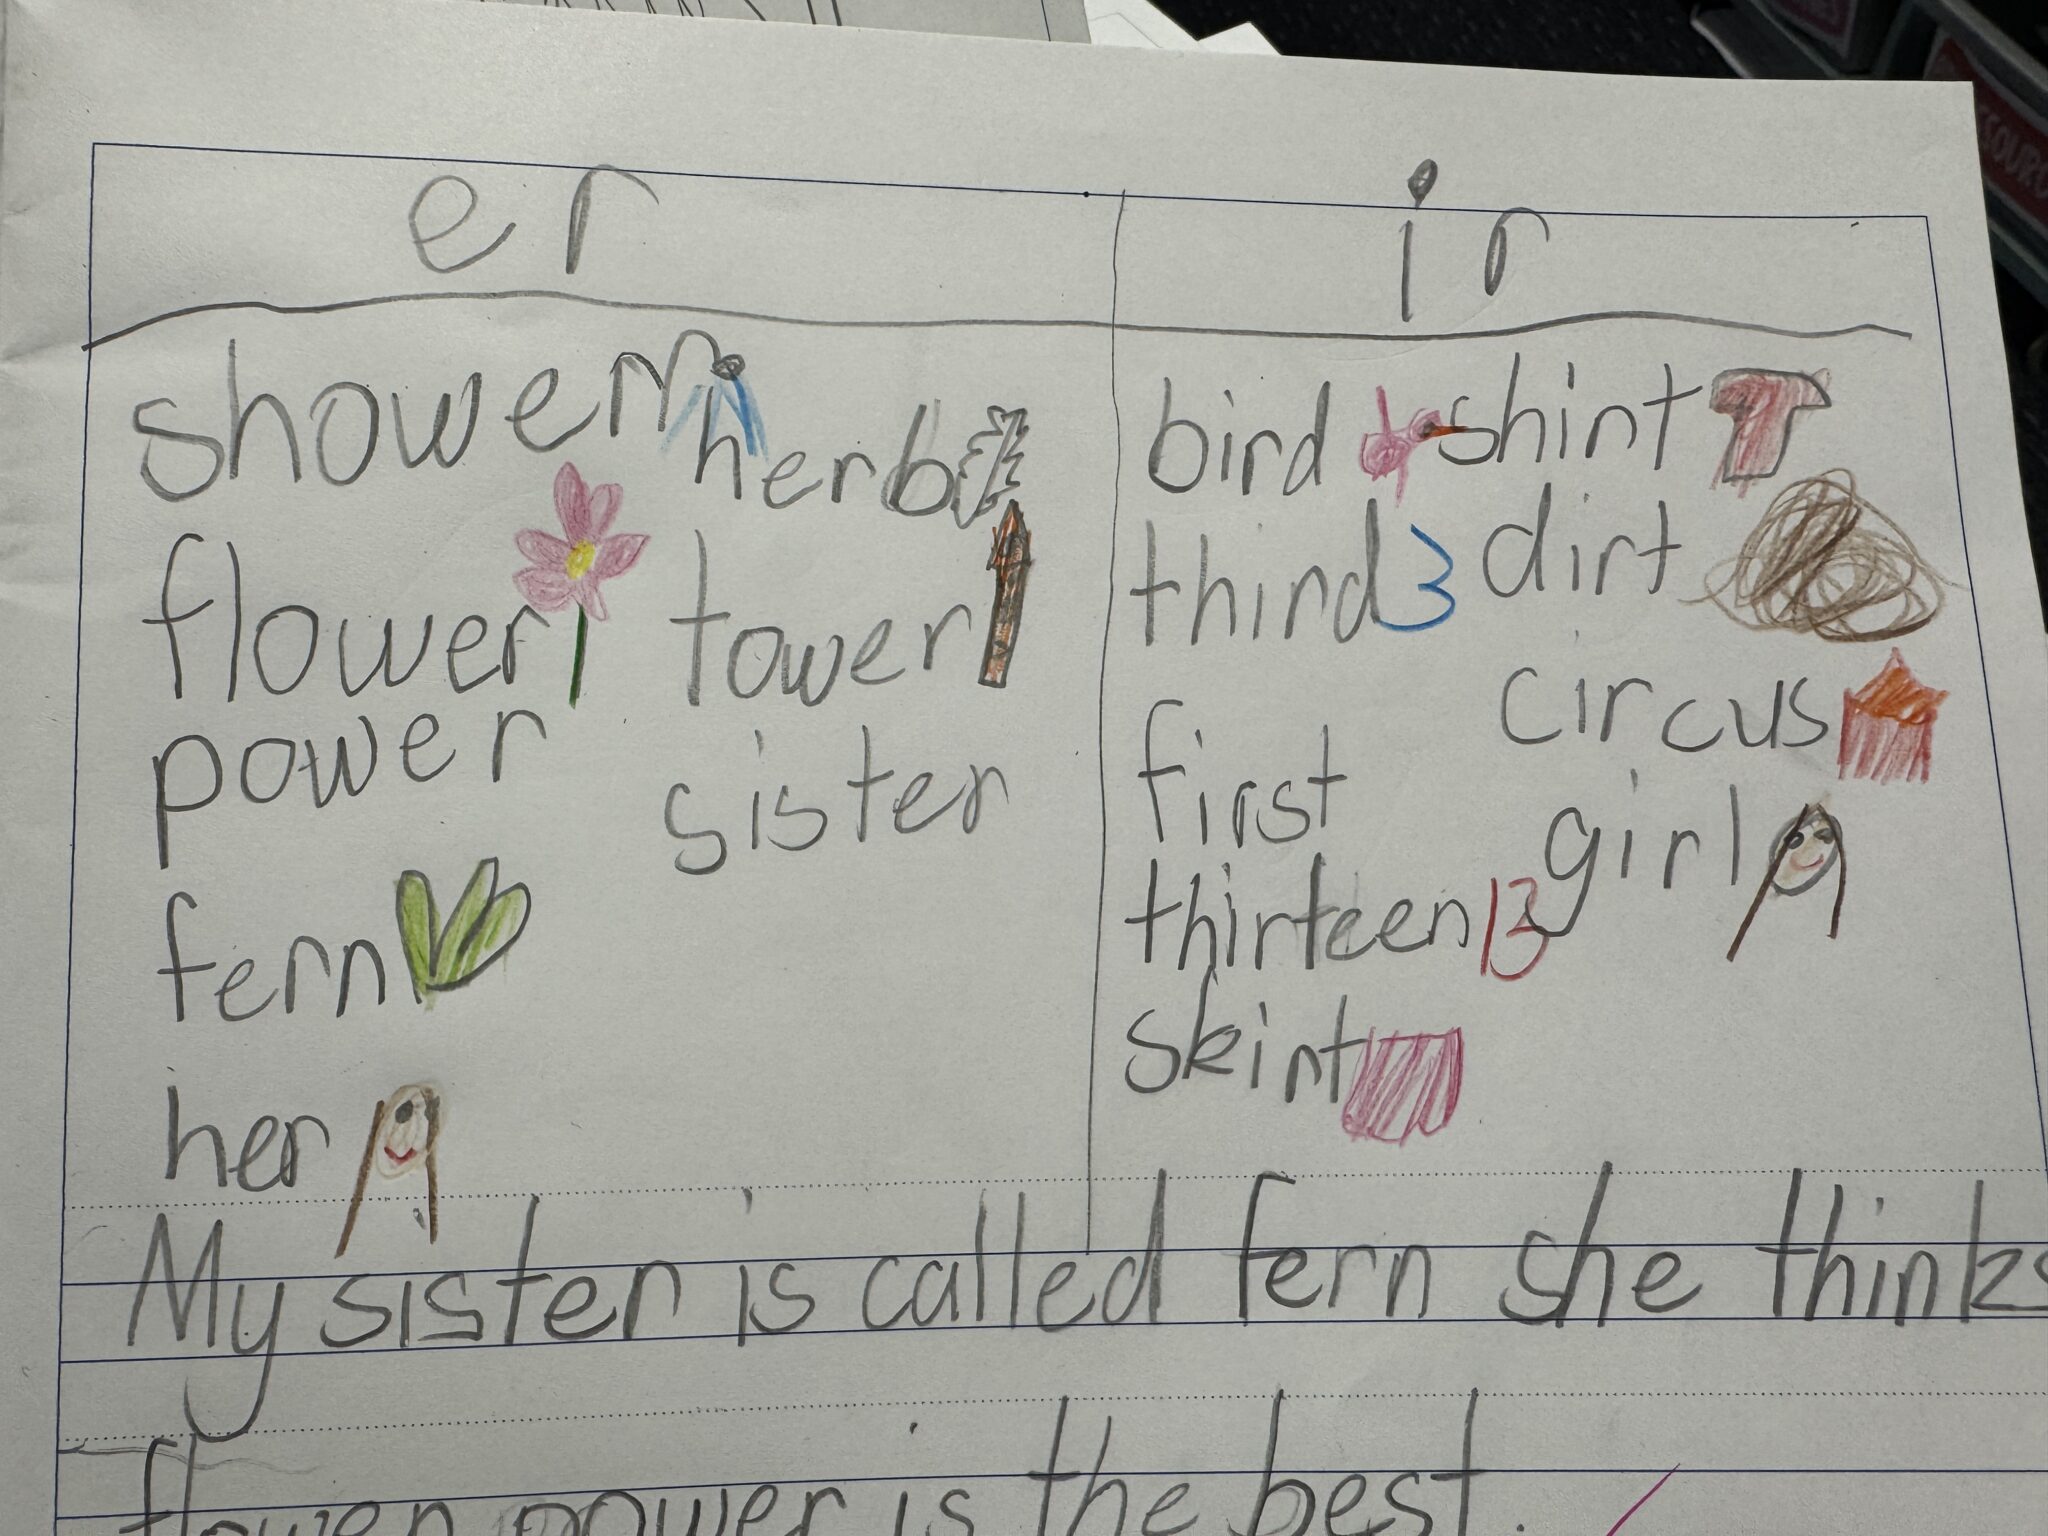 er ir
shower herb bird shirt
flower tower third 3 dirt
power sister first circus
fern thirteen 13 girl
her skirt
My sister is called fern she thinks
flower power is the best.